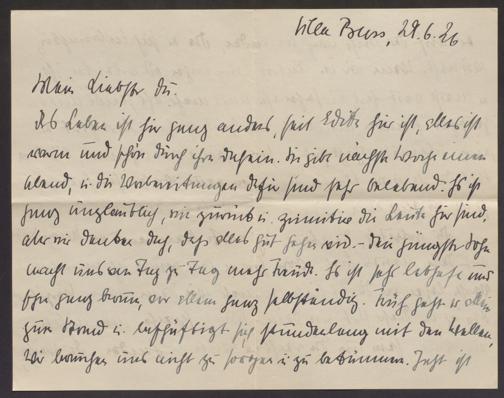 Villa Buss, 29.6.26
Mein Liebster Du.
Das Leben ist hier ganz anders, seit Edith hier ist, alles ist
warm und schön durch ihr Dasein. Sie gibt nächste Woche einen
Abend, u. die Vorbereitungen dafür sind sehr belebend. Es ist
ganz unglaublich, wie zurück u. primitiv die Leute hier sind,
aber wir denken doch, dass alles gut gehen wird. – Der jüngste Sohn
macht uns von Tag zu Tag mehr Freude. Er ist sehr lebhaft und
ganz braun, vor allem ganz selbständig. Früh geht er allein
zum Strand u. beschäftigt sich stundenlang mit den Wellen,
wir brauchen uns nicht zu sorgen u. zu bekümmern. Jetzt ist